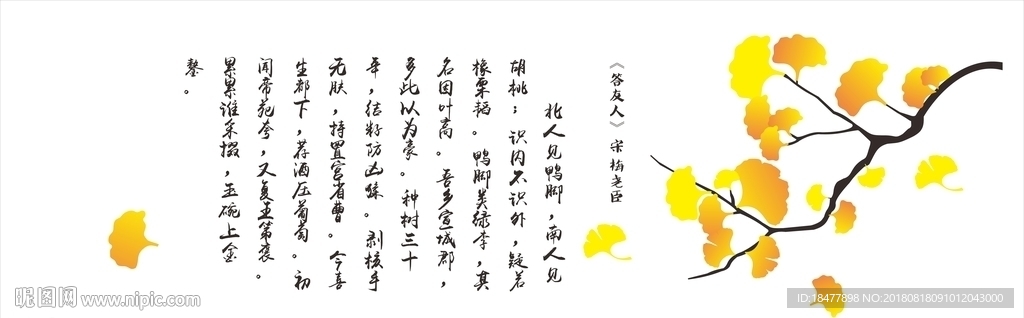 《答友人》宋梅尧臣
北人见鸭脚，南人见
胡桃；识内不识外，疑若
橡栗韬。鸭脚类绿李，其
名因叶高。吾乡宣城郡，
多此以为豪。种树三十
年，结籽防凶猱。剥核手
无肤，持置宫省曹。今喜
生都下，荐酒压葡萄。初
闻帝苑夸，又复主第褒。
累累谁采掇，玉碗上金
鏊。
昵图网 www.nipic.com
ID:18477898 NO:20180818091012043000